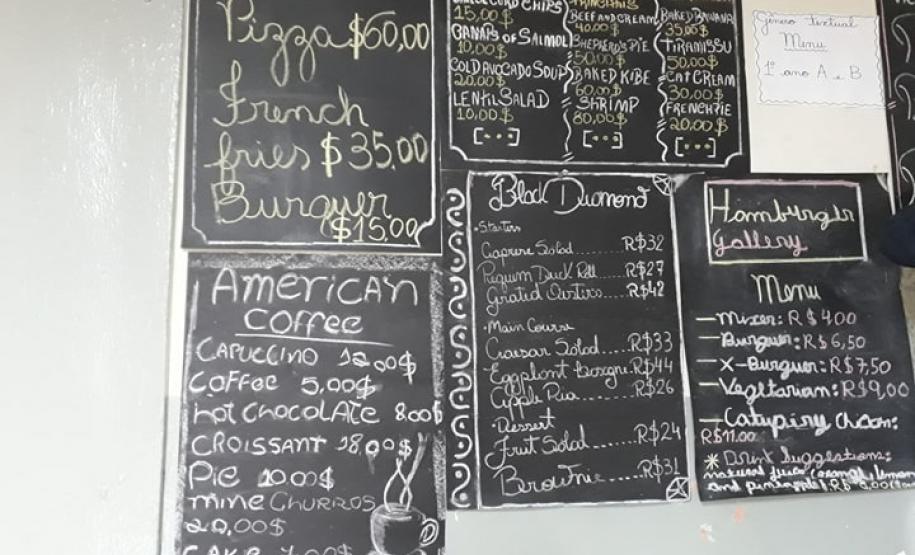 Pizza $60,00
French
fries $35.00
Burguer
$15.00
CHIPS
15,00$
CANAPS OF SALMOL
10,00$
COLD AVOCADO SOUP
20,00$
LENTIL SALAD
10,00$
[...]
BEEF AND CREAM
40,00$
SHEPHERD'S PIE
50,00$
BAKED KIBE
60,00$
SHRIMP
80,00$
[...]
BAKED BANANA
35,00$
TIRAMISSU
50,00$
CAT CREAM
30,00$
FRENCH PIE
20,00$
[...]
Gênero textual
Menu
1º ano A e B
AMERICAN
COFFEE
CAPUCCINO 12,00$
COFFEE 5,00$
HOT CHOCOLATE 8,00$
CROISSANT 18,00$
PIE 10,00$
MINE CHURROS
20,00$
CAKE 7,00$
Black Diamond
• Starters
Caprese Salad ........ R$32
Duck Roll ........ R$27
R$42
• Main Course
Caesar Salad ........ R$33
Eggplant R$44
Apple Pie ........ R$26
• Dessert
Fruit Salad ........ R$24
Brownie ........ R$31
Hamburger
gallery
Menu
— Mixer: R$ 4,00
— Burguer: R$ 6,50
— X-Burguer: R$7,50
— Vegetarian: R$9,00
— Catupiry
R$11.00
* Drink Suggestions:
natural juice (orange, lemon
and pineapple) R$